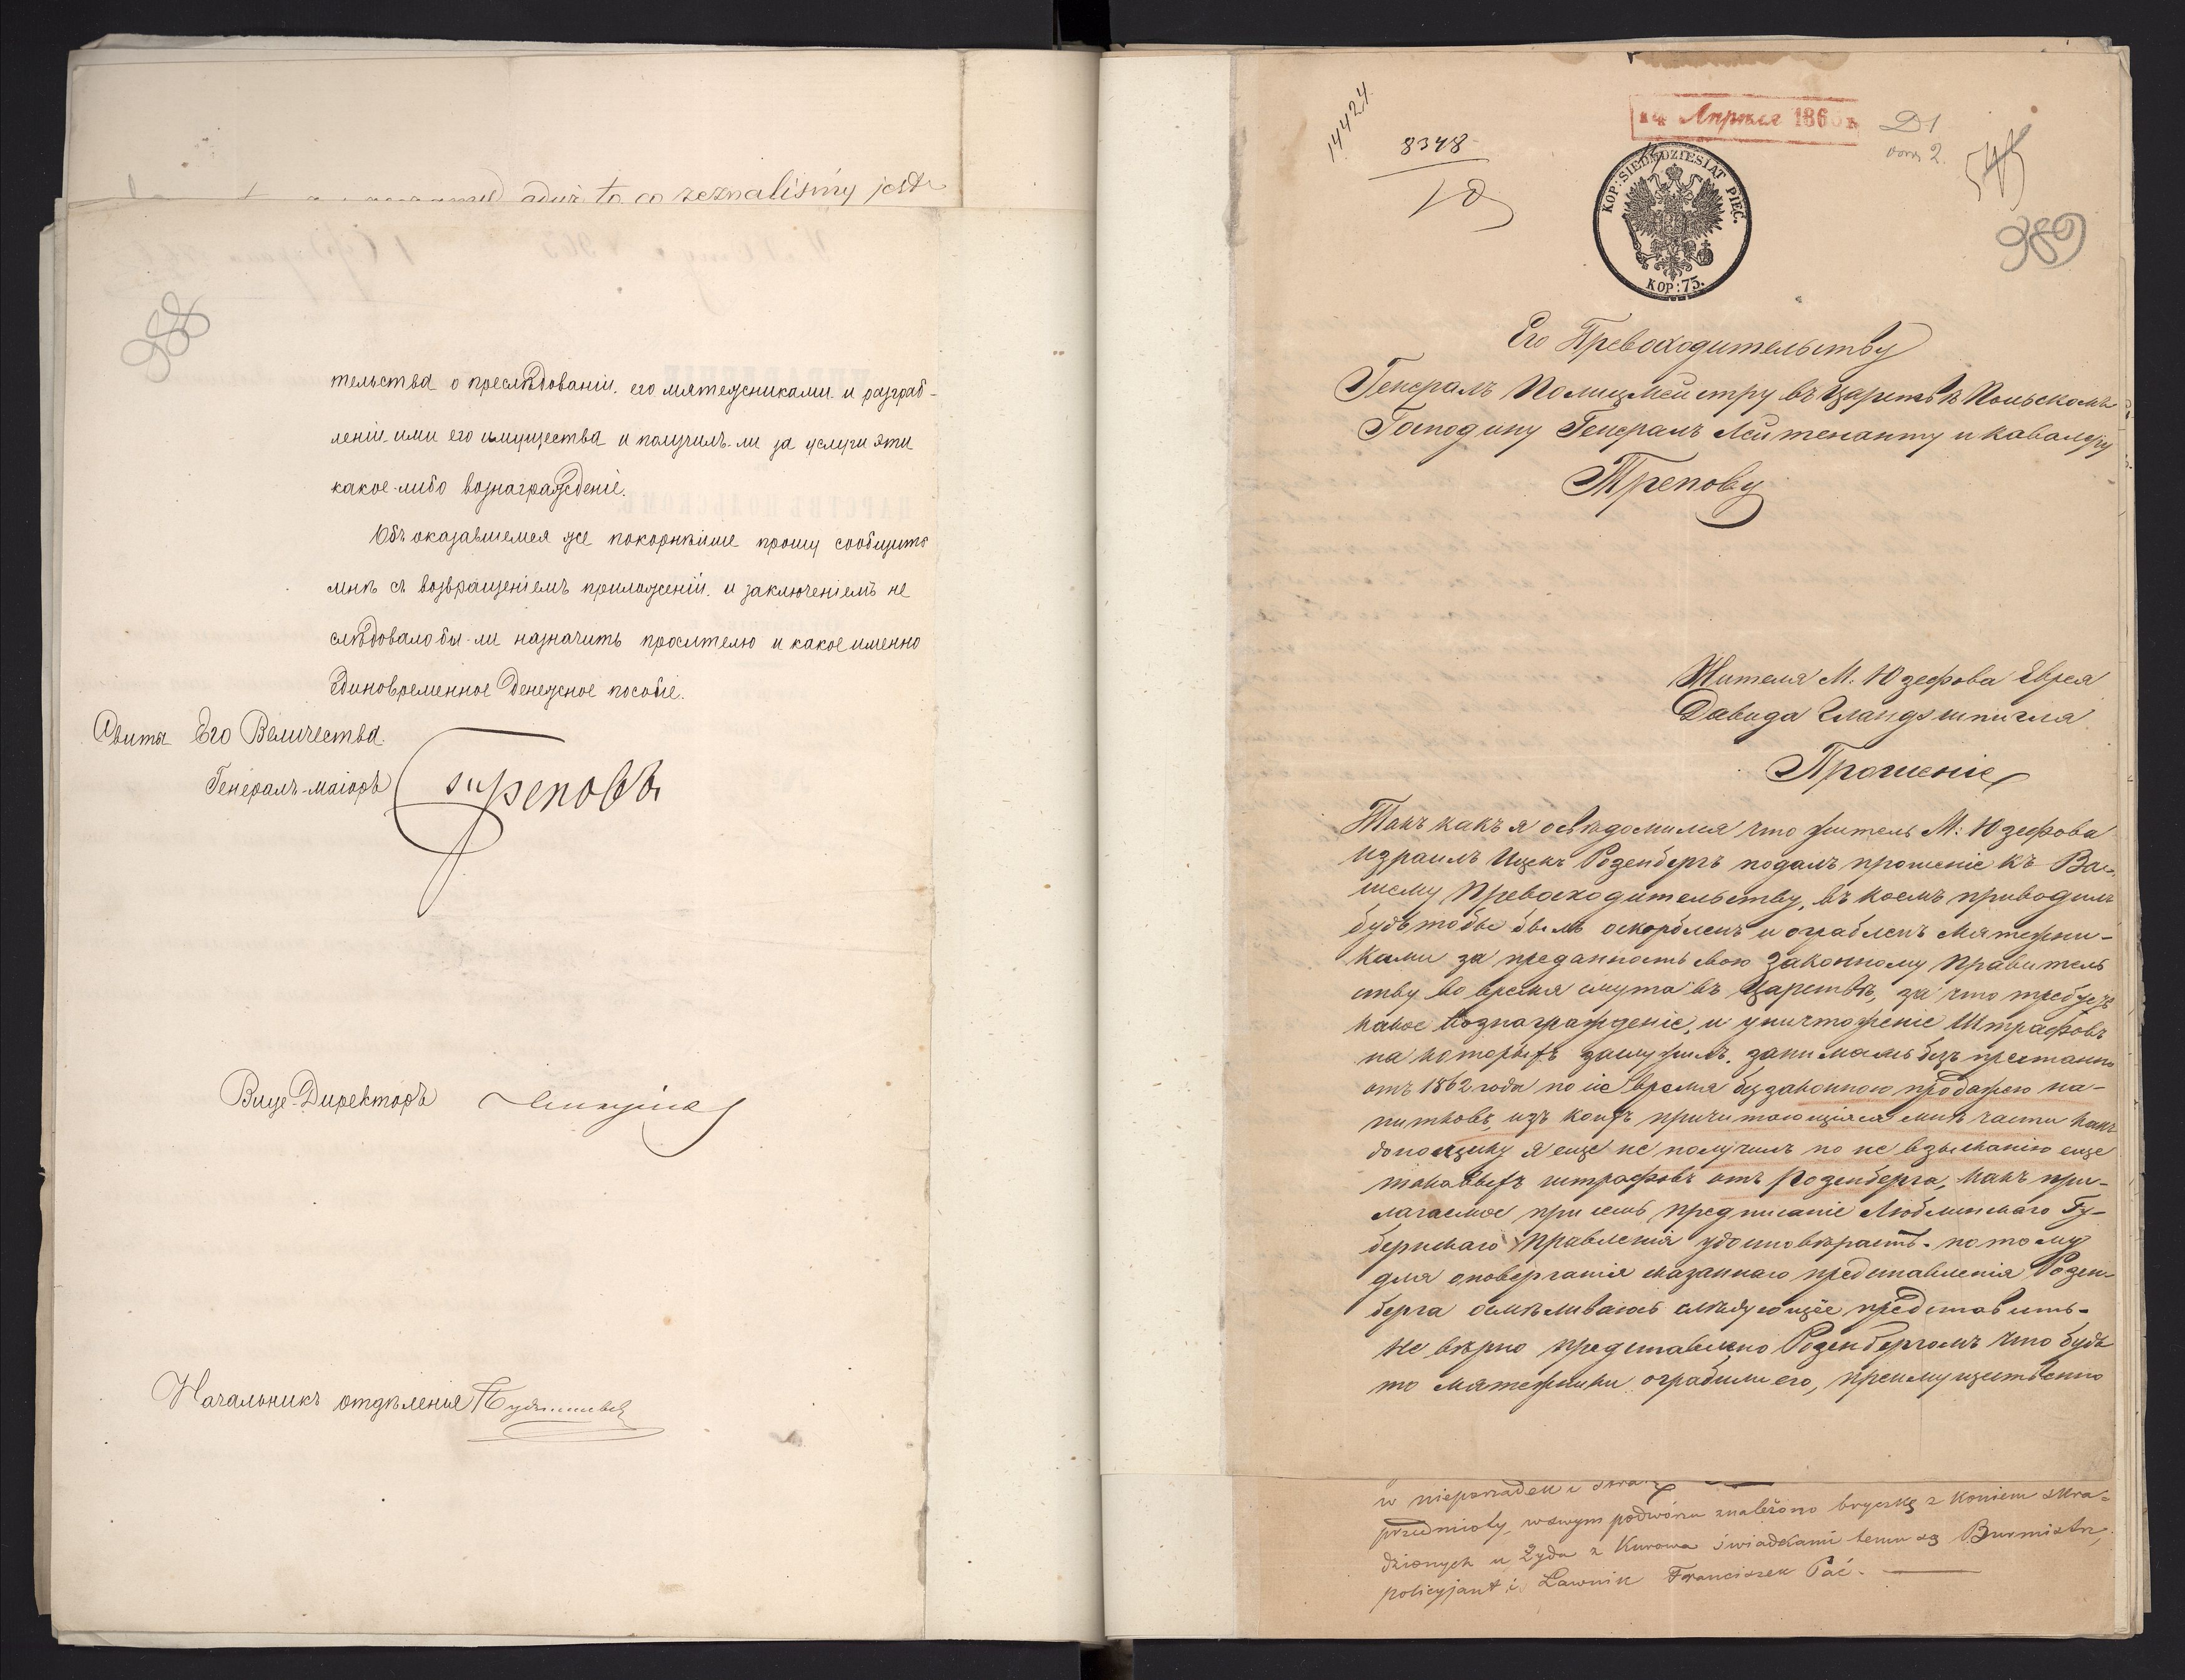 to co zeznaliśmy jest
388
тельства о преслѣдованіи его мятежниками и разграб-
леніи ими его имущества и получилъ-ли за услуги эти
какое-либо вознагражденіе.
Объ оказавшемся же покорнѣйше прошу сообщить
мнѣ съ возвращеніемъ приложеній и заключеніемъ не
слѣдовало бы-ли назначить просителю и какое именно
единовременное денежное пособіе.
Свиты Его Величества
Генералъ-маіоръ Треповъ
Вице-Директоръ
Начальникъ отдѣленія
14424
8348
14 Апрѣля 186
KOP: SIEDMDZIESIAT PIĘĆ.
KOP: 75.
389
Его Превосходительству
Генералъ Полицмейстру въ Царствѣ Польскомъ
Господину Генералъ Лейтенанту и Кавалеру
Трепову
Жителя М. Юзефова Еврея
Давида Гландзшпигля
Прошеніе
Такъ какъ я освѣдомился что житель М: Юзефова
Израиль Ицекъ Розенбергъ подалъ прошеніе къ Ва-
шему Превосходительству, въ коемъ приводилъ
будьтобы былъ оскорбленъ и ограбленъ мятежни-
ками за преданность свою Законному Правитель
ству во время смута въ Царствѣ, за что требуетъ
какое вознагражденіе, и уничтоженіе Штрафовъ
на которыхъ заслужилъ, занимаясь безъ престанно
отъ 1862 года по сіе время беззаконною продажею на-
питковъ, изъ коихъ причитающіяся мнѣ части какъ
доносщику я еще не получилъ по не взысканію еще
таковыхъ штрафовъ отъ Розенберга, какъ при-
лагаемое при семъ предписаніе Люблинскаго Гу-
бернскаго Правленія удостовѣряетъ. потому
для оповержанія сказаннаго представленія Розен-
берга осмѣливаюсь слѣдующее представить-
Не вѣрно представлено Розенбергомъ что будь
то мятежники ограбили его, преимущественно
w nieporządek i
przedmioty, w swym podwórzu znaleziono bryczkę z koniem skra-
dzionych u Żyda z Kurowa świadkami temu są Burmistrz,
policyjant i Ławnik Franciszek Pać.